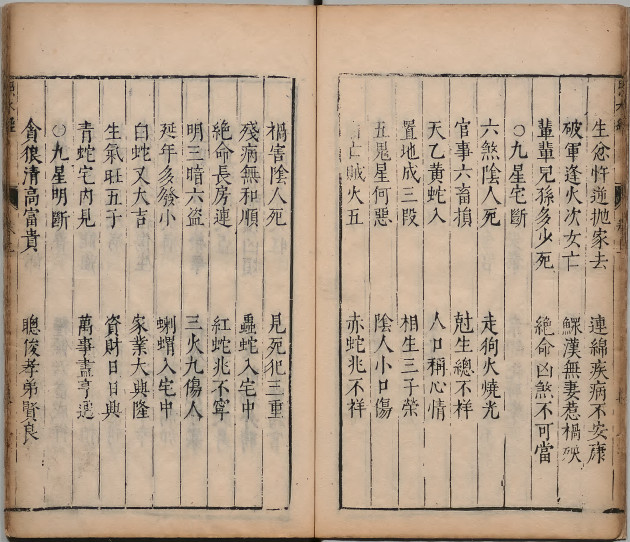 生忿忤逆拋家去 連綿疾病不安康
破軍逢火次女亡 鰥漢無妻惹禍殃
輩輩兒孫多少死 絶命凶煞不可當
○九星宅斷
六煞陰人死 走狗火燒光
官事六畜損 尅生總不祥
天乙黃蛇入 人口稱心情
置地成三段 相生三子榮
五鬼星何惡 陰人小口傷
亡賊火五 赤蛇兆不祥
禍害陰人死 見死犯三重
殘病無和順 蟲蛇入宅中
絶命長房連 紅蛇兆不寧
明三暗六盜 三火九傷人
延年多發小 蝌蝟入宅中
白蛇又大吉 家業大興隆
生氣旺五子 資財日日興
青蛇宅內見 萬事盡亨通
○九星明斷
貪狼清高富貴 聰俊孝弟賢良